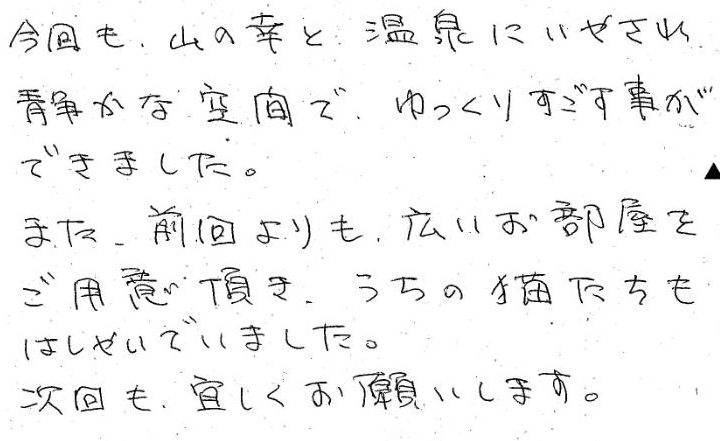 今回も、山の幸と、温泉にいやされ
静かな空間で、ゆっくりすごす事が
できました。
また、前回よりも、広いお部屋を
ご用意頂き、うちの猫たちも
はしゃいでいました。
次回も、宜しくお願いします。